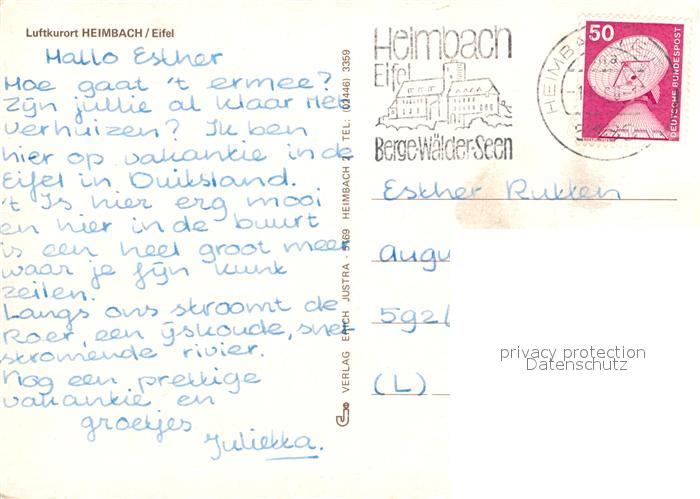 Luftkurort HEIMBACH / Eifel
Hallo Esther
Hoe gaat 't ermee?
Zijn jullie al klaar met
verhuizen? Ik ben
hier op vakantie in de
Eifel in Duitsland.
't Is hier erg mooi
en hier in de buurt
is een heel groot meer
waar je fijn kunt
zeilen.
Langs ons stroomt de
Roer, een ijskoude, snel
stromende rivier.
Nog een prettige
vakantie en
groetjes
Juliekka.
VERLAG ERICH JUSTRA · 5169 HEIMBACH 2 · TEL: (02446) 3359
Heimbach
Eifel
Berge-Wälder-Seen
HEIMBA
50
DEUTSCHE BUNDESPOST
Esther Rutten
augu
592
(L)
privacy protection
Datenschutz